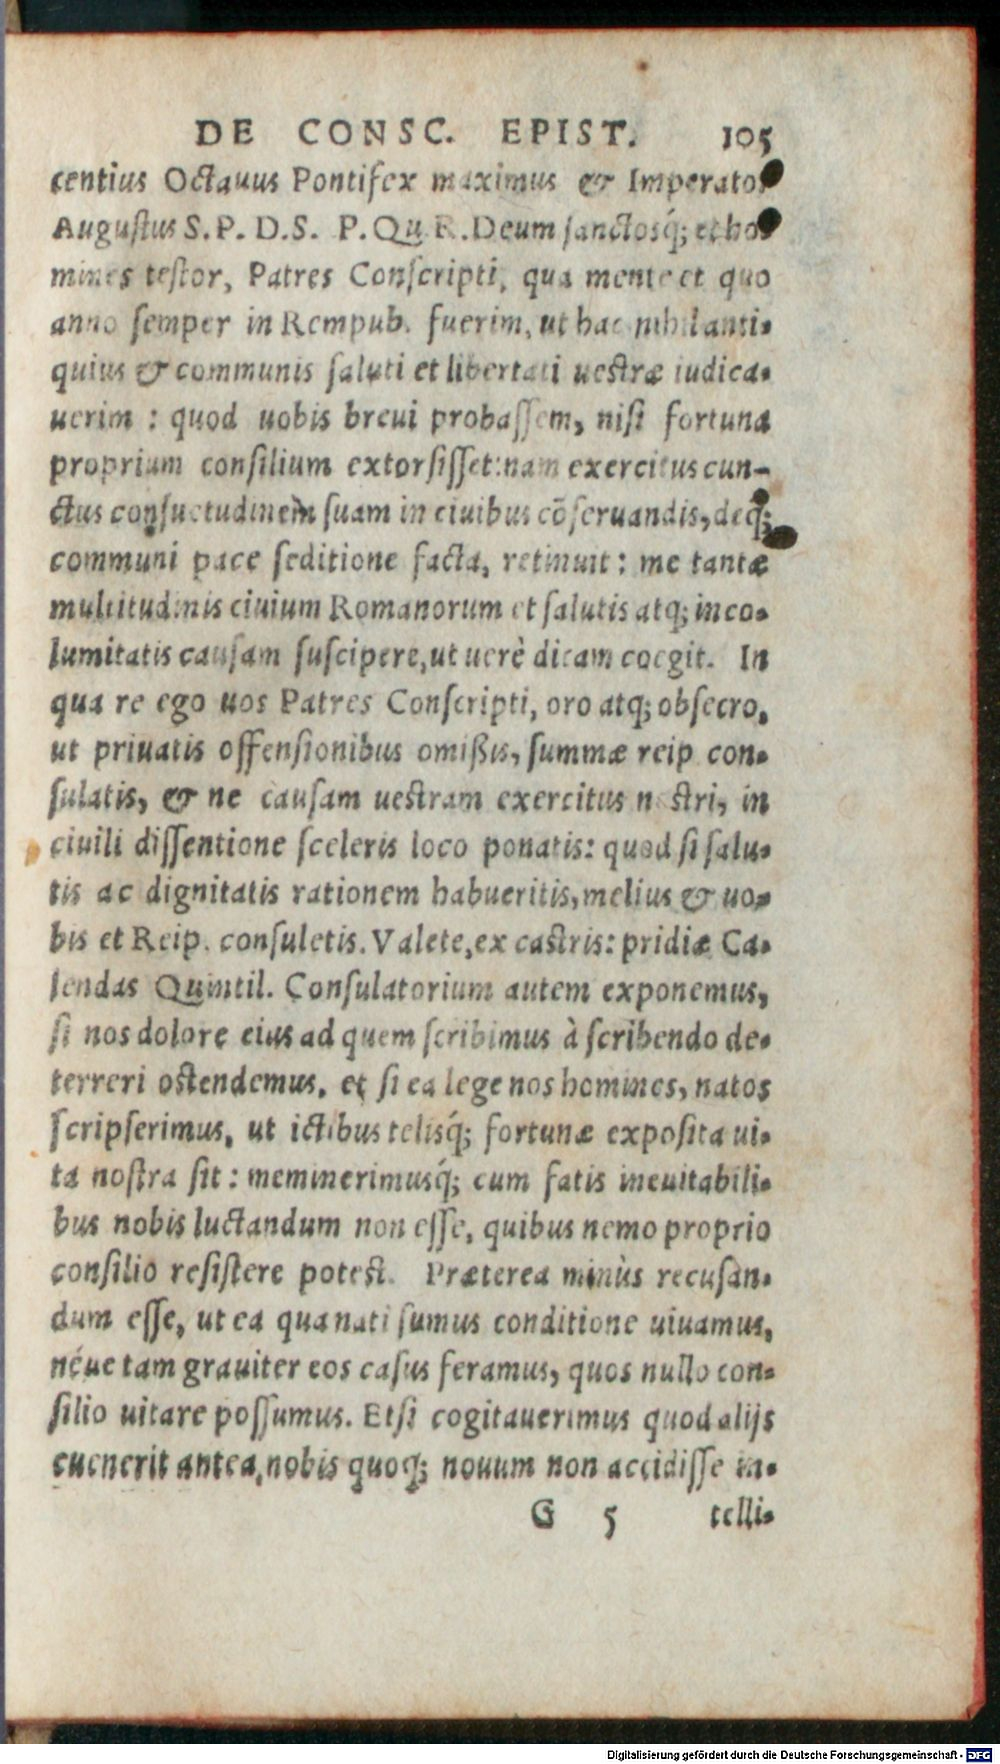 DE CONSC. EPIST. 105
centius Octauus Pontifex maximus & Imperator
Augustus S.P. D.S. P.Qu R. Deum sanctosq́; et ho-
mines testor, Patres Conscripti, qua mente et quo
anno semper in Rempub. fuerim, ut hac nihil anti-
quius & communis saluti et libertati uestræ iudica-
uerim : quod uobis breui probassem, nisi fortuna
proprium consilium extorsisset: nam exercitus cun-
ctus consuetudinem suam in ciuibus cōseruandis, deq́;
communi pace seditione facta, retinuit : me tantæ
multitudinis ciuium Romanorum et salutis atq; inco-
lumitatis causam suscipere, ut uerè dicam coegit. In
qua re ego uos Patres Conscripti, oro atq; obsecro,
ut priuatis offensionibus omißis, summæ reip con-
sulatis, & ne causam uestram exercitus nostri, in
ciuili dissentione sceleris loco ponatis: quod si salu-
tis ac dignitatis rationem habueritis, melius & uo-
bis et Reip. consuletis. Valete, ex castris: pridiæ Ca-
lendas Quintil. Consulatorium autem exponemus,
si nos dolore eius ad quem scribimus à scribendo de-
terreri ostendemus. et si ea lege nos homines, natos
scripserimus, ut ictibus telisq́; fortunæ exposita ui-
ta nostra sit : meminerimusq́; cum fatis ineuitabili-
bus nobis luctandum non esse, quibus nemo proprio
consilio resistere potest. Præterea minùs recusan-
dum esse, ut ea qua nati sumus conditione uiuamus,
néue tam grauiter eos casus feramus, quos nullo con-
silio uitare possumus. Etsi cogitauerimus quod alijs
euenerit antea, nobis quoq; nouum non accidisse in-
G 5 telli-
Digitalisierung gefördert durch die Deutsche Forschungsgemeinschaft - DFG